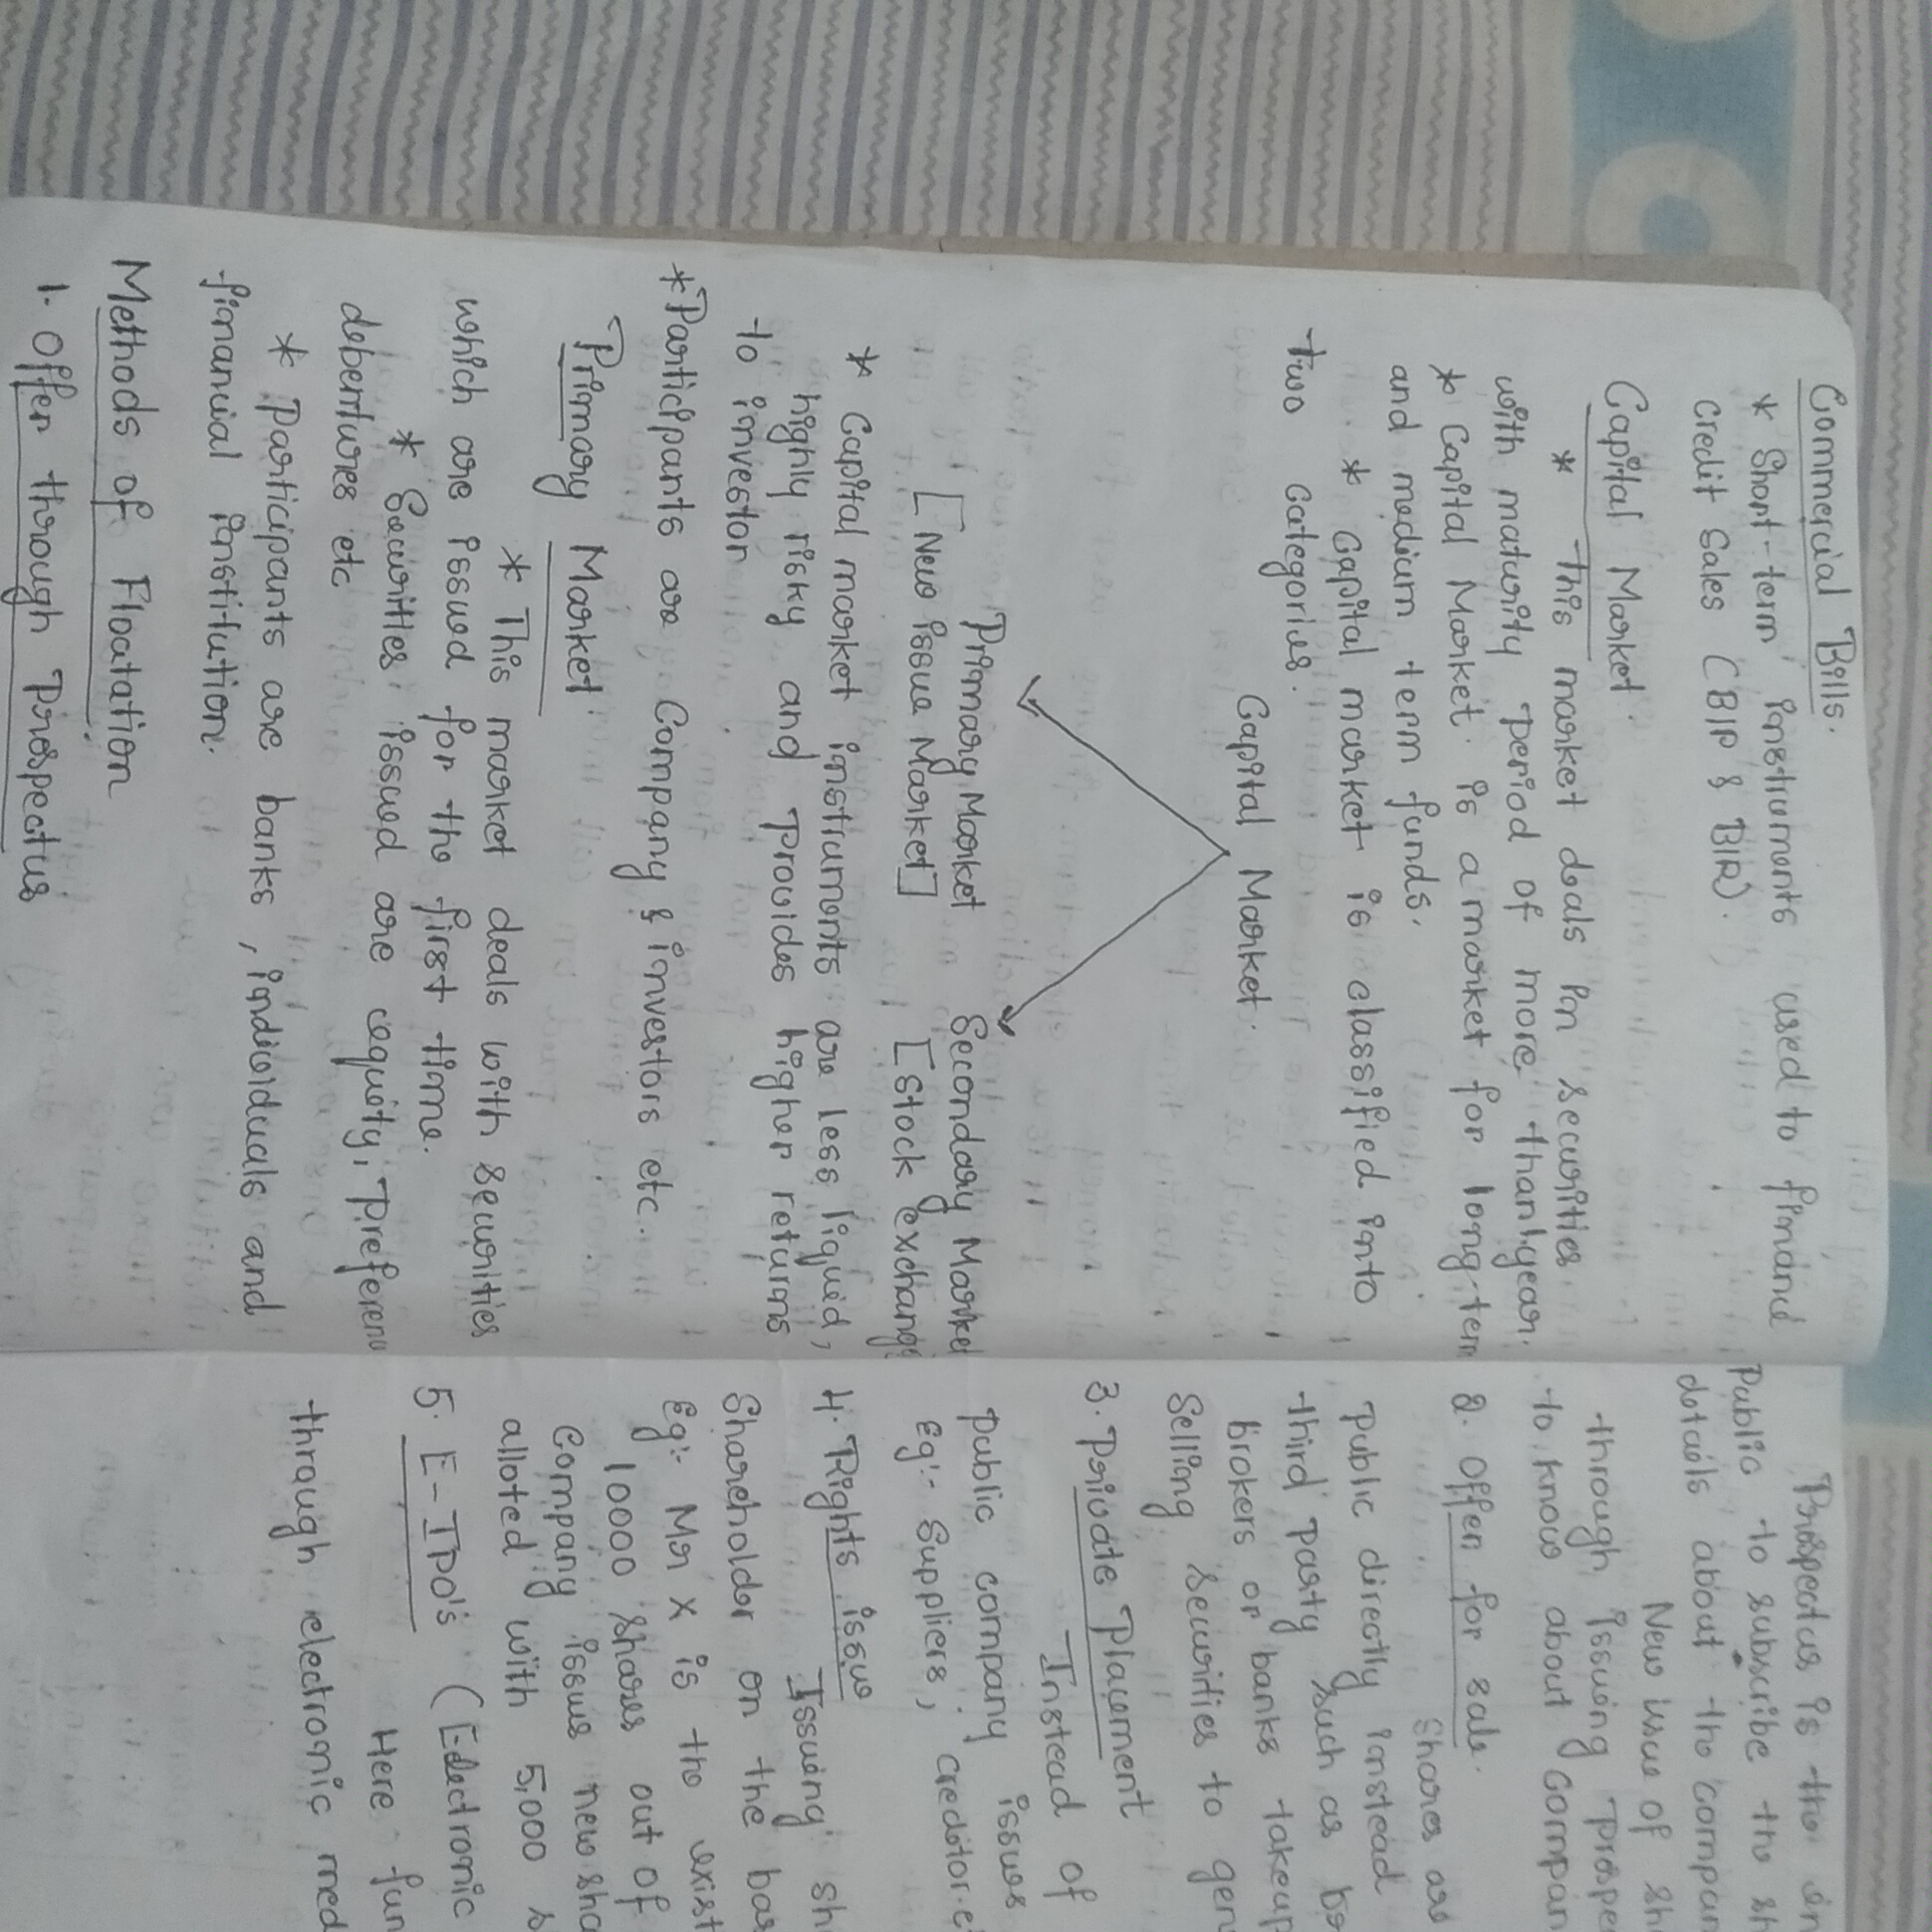 Commercial Bills.
* Short-term instruments used to finance
credit Sales (BIP & BIR).
Capital Market.
* This market deals in securities
with maturity period of more than 1 year.
* Capital Market is a market for long-term
and medium term funds.
* Capital market is classified into
two categories.
Capital Market.
Primary Market Secondary Market
[New issue Market] [Stock exchange
* Capital market instruments are less liquid,
highly risky and Provides higher returns
to investor
* Participants are Company & investors etc.
Primary Market
* This market deals with securities
which are issued for the first time.
* Securities issued are equity, Preferen
debentures etc
* Participants are banks, individuals and
financial institution.
Methods of Floatation
1. Offer through Prospectus
Prospectus is the in
Public to subscribe the sh
details about the compan
New issue of sh
through issuing Prospe
to know about compan
2. Offer for sale.
Shares are
Public directly instead
third Party such as br
brokers or banks takeup
Selling securities to gen
3. Private Placement
Instead of
public company issues
Eg:- Suppliers, creditor.e
4. Rights issue
Issuing sh
Shareholder on the bas
Eg:- Mr X is the exist
10000 shares out of
Company issue new sha
alloted with 5,000 s
5. E-IPO's (Electronic
Here fun
through electronic med